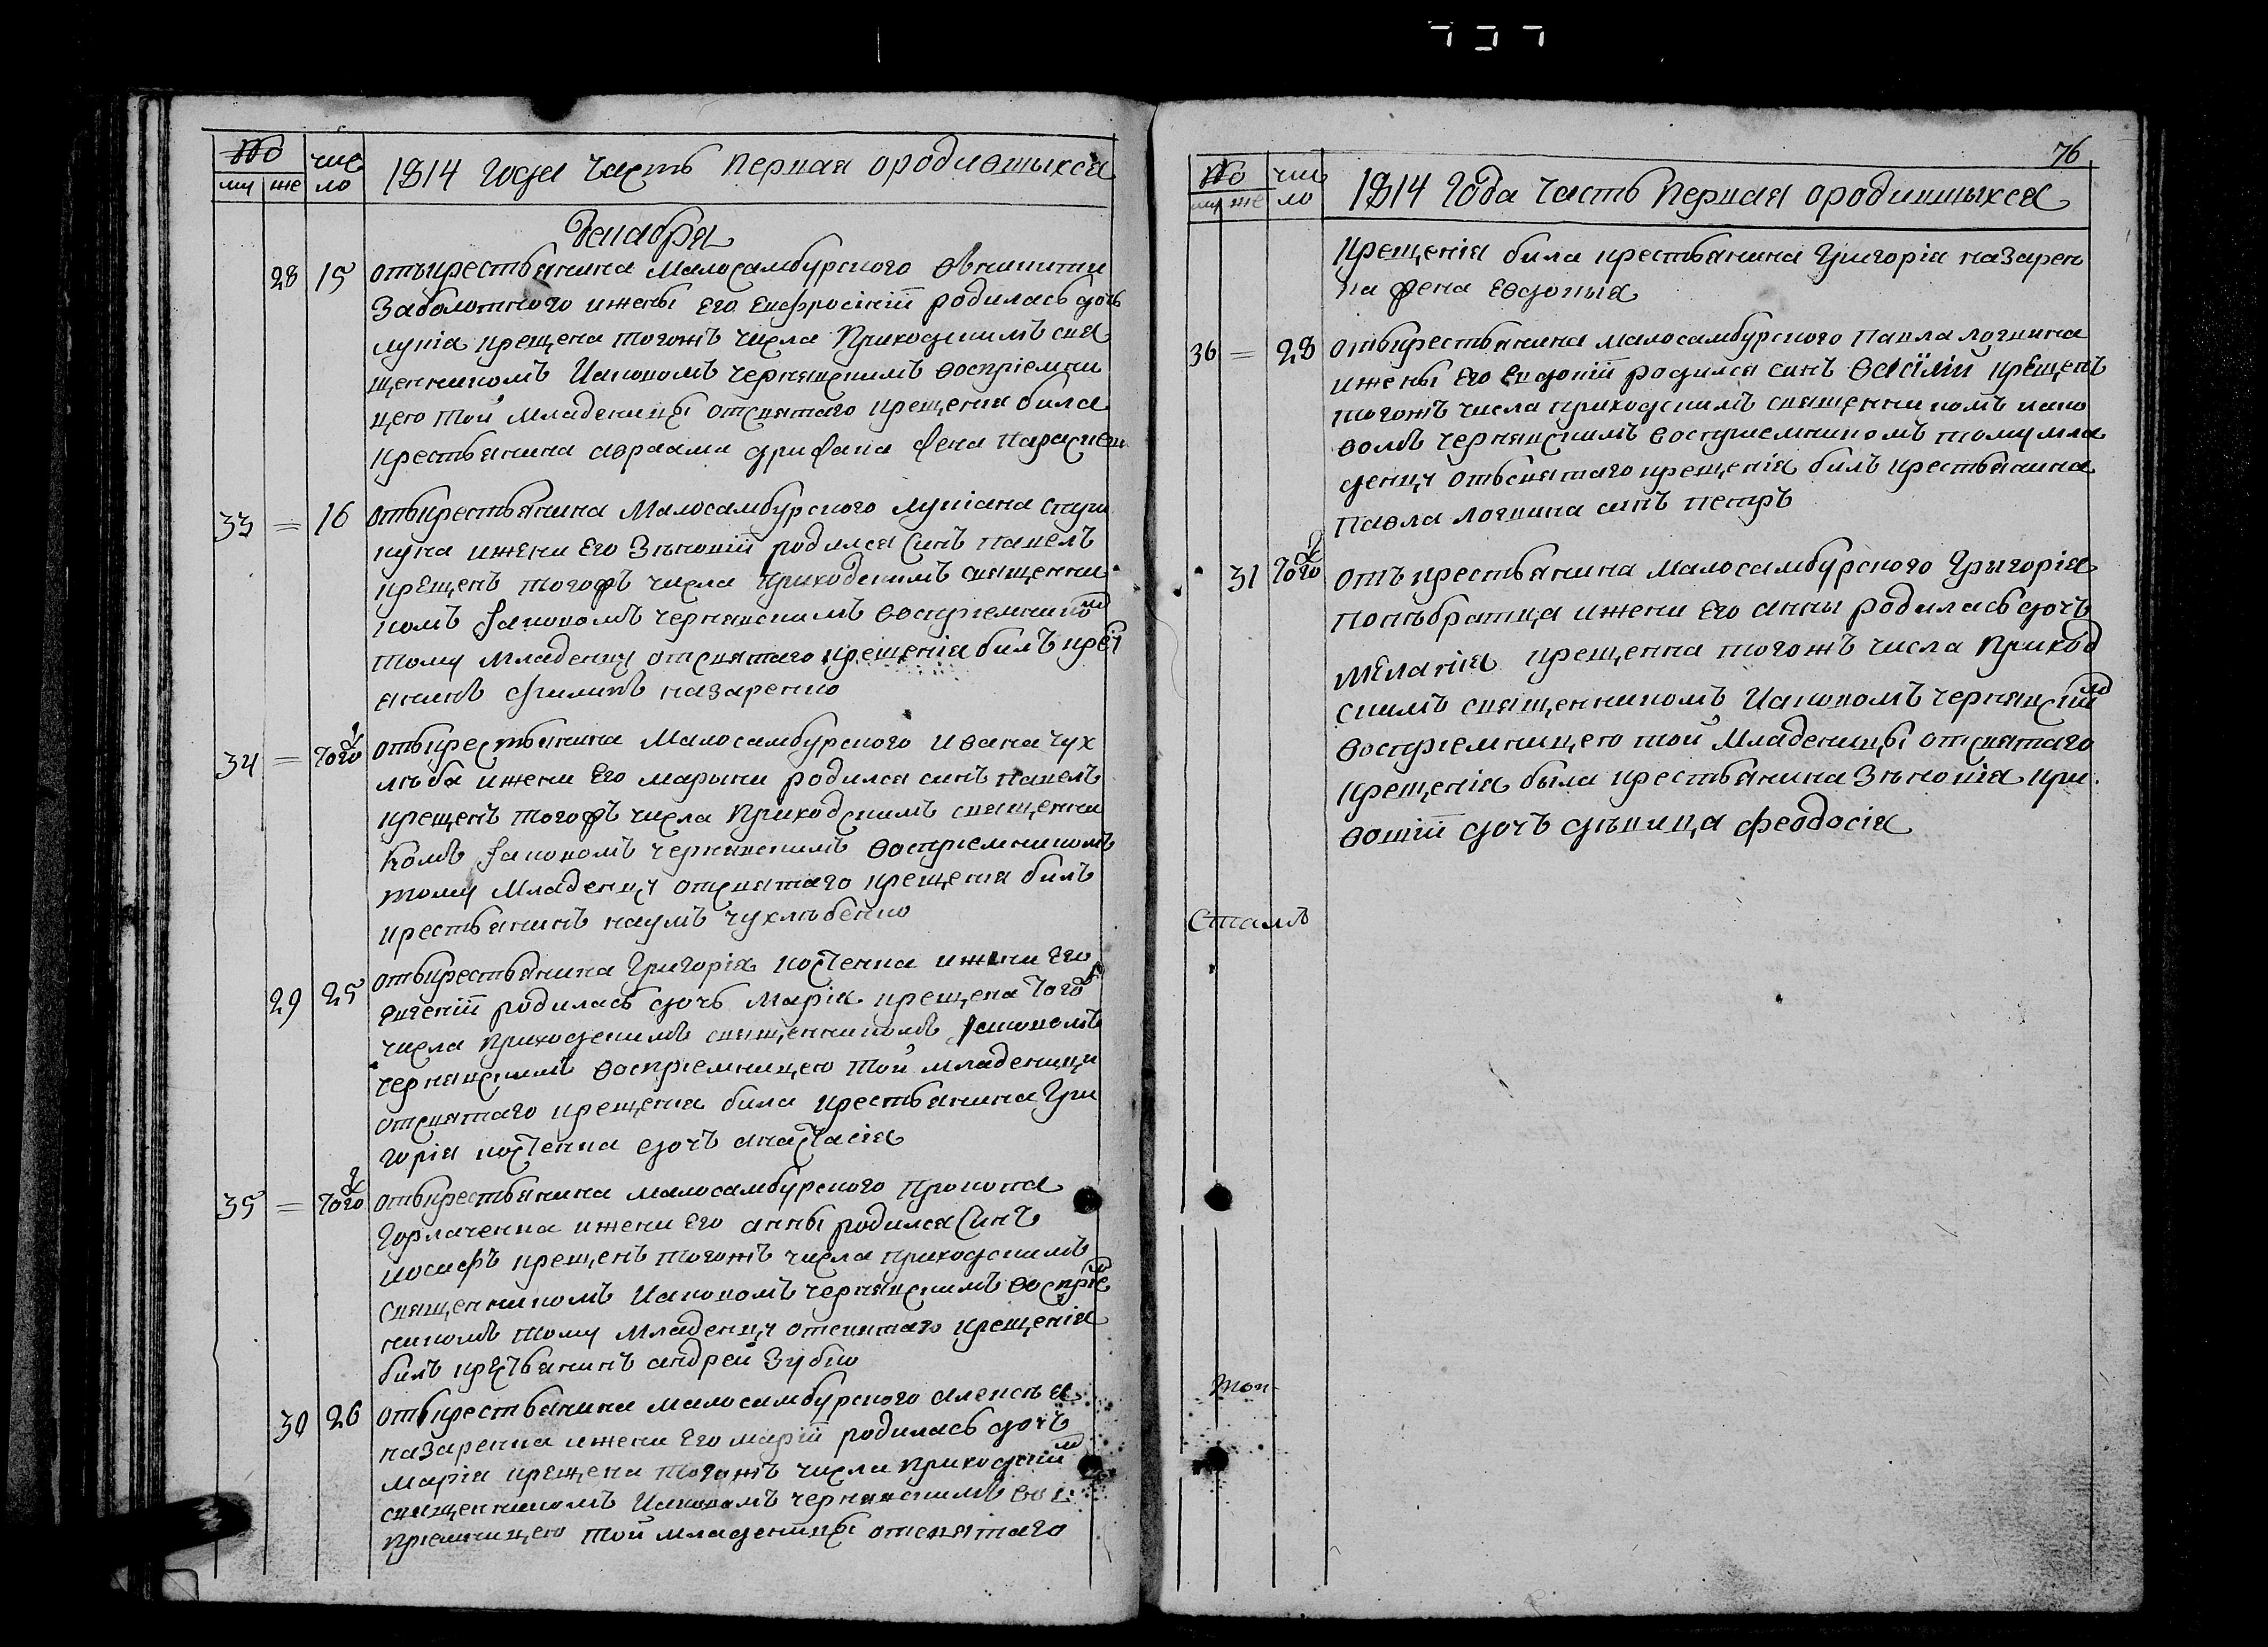 № чис 1814 года Часть Первая ородившыхся
му же ло
Декабря
28 15 отъкрестьянина Малосамбурского
Заболотного ижены Его Евфросиніи родилась дочь
лукія крещена тогожъ числа Приходскимъ свя
щенникомъ Иаковомъ чернявскимъ воспріемни
цею той Младеницы отсвятаго крещения била
крестьянина авраама жена параскева
33 = 16 отъкрестьянина Малосамбурского лукіана
ижени Его Зѣновіи родился Синъ павелъ
крещенъ тогожъ числа Приходскимъ священни
комъ Іаковомъ чернявскимъ воспріемникомъ
тому Младенцу отсвятаго крещенія билъ крест
янинъ филипъ назаренко
34 = тогож отъкрестьянина Малосамбурского Ивана чух
лѣба ижени Его марыни родился синъ павелъ
крещенъ тогожъ числа Приходскимъ священни
комъ Іаковомъ чернявскимъ воспріемникомъ
тому Младенцу отсвятаго крещения билъ
крестьянинъ наумъ чухлѣбенко
29 25 отъкрестьянина Григорія костенка ижени Его
евгеніи родилась дочь Марія крещена тогож
числа приходскимъ священникомъ Іаковомъ
чернявскимъ воспріемницею той младеници
отсвятаго крещения била крестьянина Гри
горія костенка дочъ анастасія
35 = тогож отъкрестьянина малосамбурского Прокопа
Горлаченка ижени Его анны родился Синъ
иосифъ крещенъ тогожъ числа приходскимъ
священникомъ Иаковомъ чернявскимъ воспріем
никомъ тому Младенцу отсвятаго крещенія
билъ крестьянинъ андрей Зубко
30 26 отъкрестьянина малосамбурского алексѣя
назаренка ижени Его маріи родилась дочъ
марія крещена тогожъ числа приходским
священникомъ Иаковомъ чернявскимъ вос
пріемницею той младеницы отсвятаго
76
№ чис 1814 Года Часть Первая ородившыхся
му же ло
крещенія била крестьянина Григорія назарен
ка жена Евдокыя
36 = 28 отъкрестьянина малосамбурского Павла логвина
ижены Его Евдокіи родился синъ васілій крещенъ
тогожъ числа приходскимъ священникомъ иако
вомъ чернявскимъ воспріемникомъ тому мла
денцу отъсвятаго крещенія билъ крестьянина
Павла логвина синъ петръ
31 тогож отъ крестьянина Малосамбурского Григорія
ижени Его анны родилась дочъ
меланія крещенна тогожъ числа Приход
скимъ священникомъ Иаковомъ чернявским
воспріемницею той Младеницы отсвятаго
крещенія была крестьянина Зѣновія кри
вошіи дочъ дѣвица феодосія